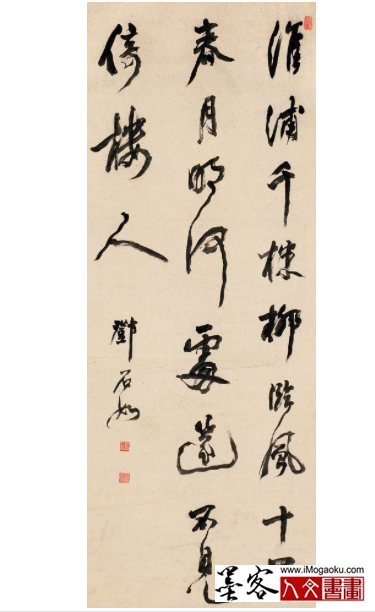 淮浦千株柳臨風十四
春月明何處篴不見
倚樓人
鄧石如
www.iMogaoku.com
墨客
人文書畫